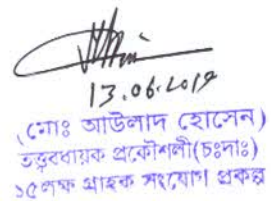 13.06.2019
(মোঃ আউলাদ হোসেন)
তত্ত্ববধায়ক প্রকৌশলী(চঃদাঃ)
১৫লক্ষ গ্রাহক সংযোগ প্রকল্প